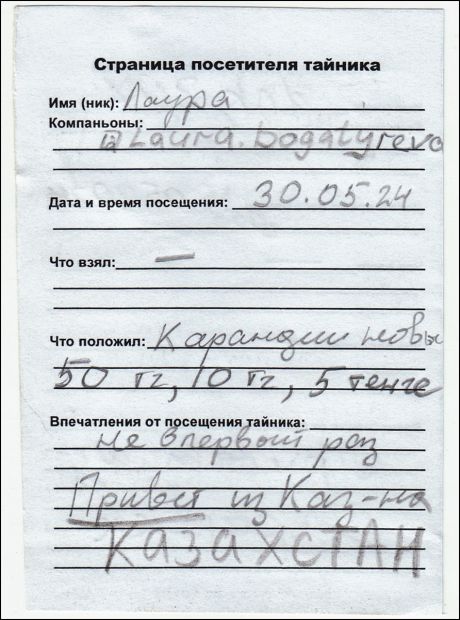 Страница посетителя тайника
Имя (ник): Лаура
Компаньоны:
@Laura.bogatyreva
Дата и время посещения: 30.05.24
Что взял: —
Что положил: Карандаш новы
50 тг, 10 тг, 5 тенге
Впечатления от посещения тайника:
не впервый раз
Привет из Каз-на
КАЗАХСТАН